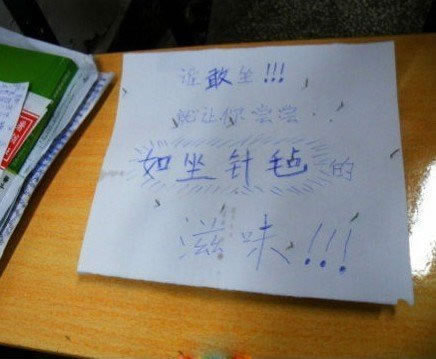 谁敢坐!!!
就让你尝尝..
如坐针毡的
滋味!!!